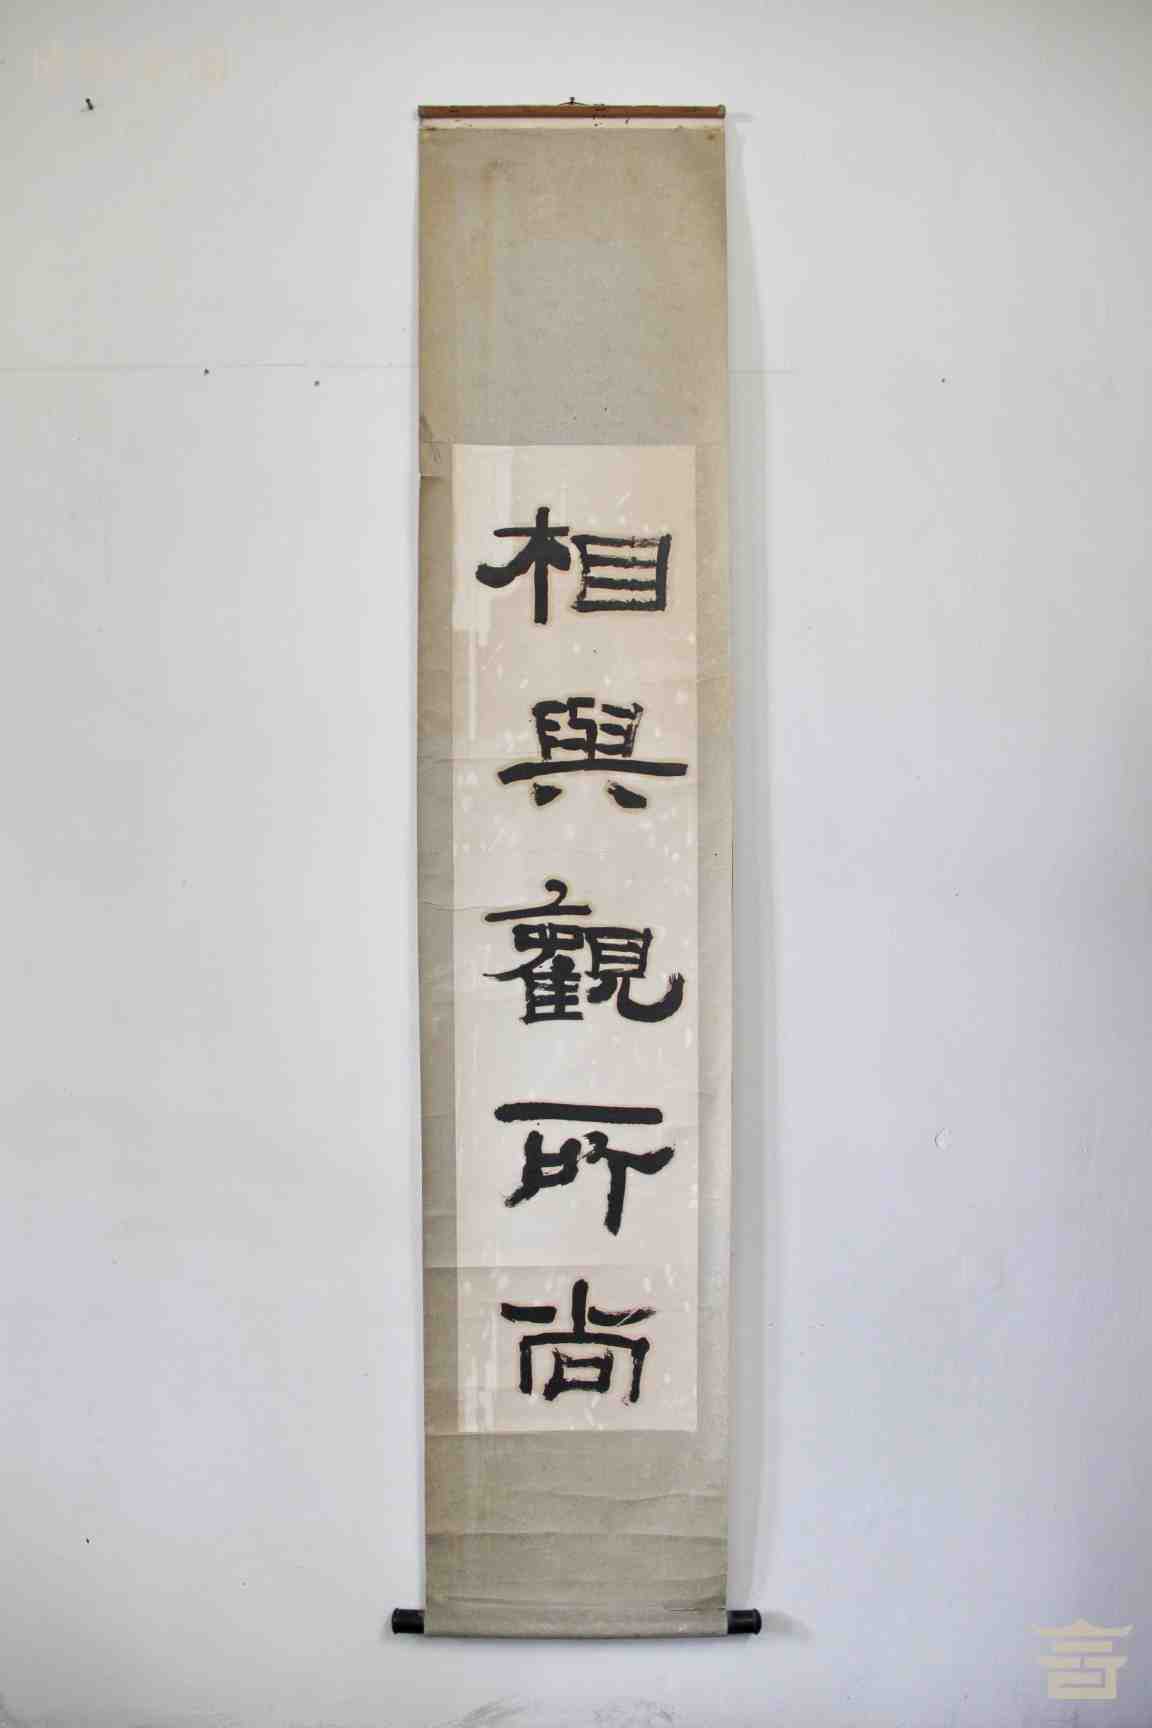 相與觀所尚